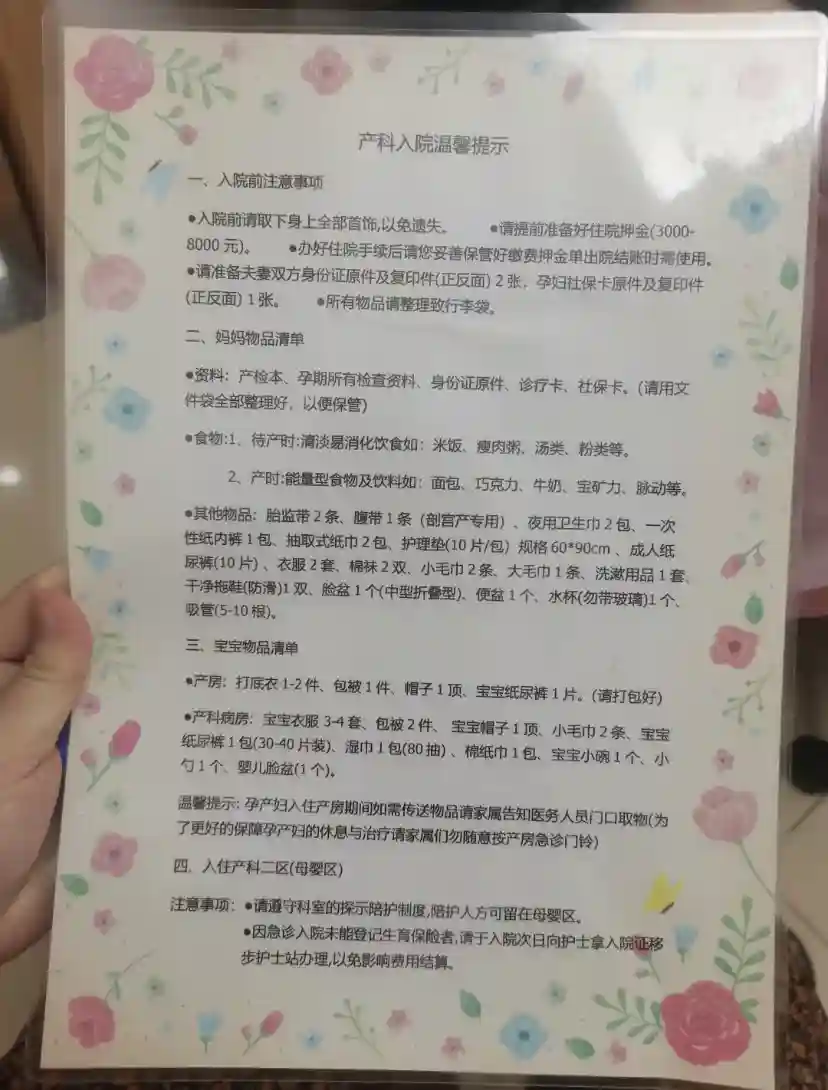 产科入院温馨提示
一、入院前注意事项
●入院前请取下身上全部首饰,以免遗失。 ●请提前准备好住院押金(3000-
8000 元)。 ●办好住院手续后请您妥善保管好缴费押金单出院结账时需使用。
●请准备夫妻双方身份证原件及复印件(正反面) 2 张，孕妇社保卡原件及复印件
(正反面) 1 张。 ●所有物品请整理致行李袋。
二、妈妈物品清单
●资料：产检本、孕期所有检查资料、身份证原件、诊疗卡、社保卡。(请用文
件袋全部整理好，以便保管)
●食物:1、待产时:清淡易消化饮食如：米饭、瘦肉粥、汤类、粉类等。
2、产时:能量型食物及饮料如：面包、巧克力、牛奶、宝矿力、脉动等。
●其他物品：胎监带 2 条、腹带 1 条（剖宫产专用）、夜用卫生巾 2 包、一次
性纸内裤 1 包、抽取式纸巾 2 包、护理垫(10 片/包）规格 60*90cm 、成人纸
尿裤(10 片）、衣服 2 套、棉袜 2 双、小毛巾 2 条、大毛巾 1 条、洗漱用品 1 套、
干净拖鞋(防滑)1 双、脸盆 1 个(中型折叠型)、便盆 1 个、水杯(勿带玻璃)1 个、
吸管(5-10 根)。
三、宝宝物品清单
●产房：打底衣 1-2 件、包被 1 件、帽子 1 顶、宝宝纸尿裤 1 片。(请打包好)
●产科病房：宝宝衣服 3-4 套、包被 2 件、 宝宝帽子 1 顶、小毛巾 2 条、宝宝
纸尿裤 1 包(30-40 片装)、湿巾 1 包(80 抽) 、棉纸巾 1 包、宝宝小碗 1 个、小
勺 1 个、婴儿脸盆(1 个)。
温馨提示: 孕产妇入住产房期间如需传送物品请家属告知医务人员门口取物(为
了更好的保障孕产妇的休息与治疗请家属们勿随意按产房急诊门铃)
四、入住产科二区(母婴区)
注意事项：●请遵守科室的探示陪护制度,陪护人方可留在母婴区。
●因急诊入院未能登记生育保险者,请于入院次日向护士拿入院证移
步护士站办理,以免影响费用结算。